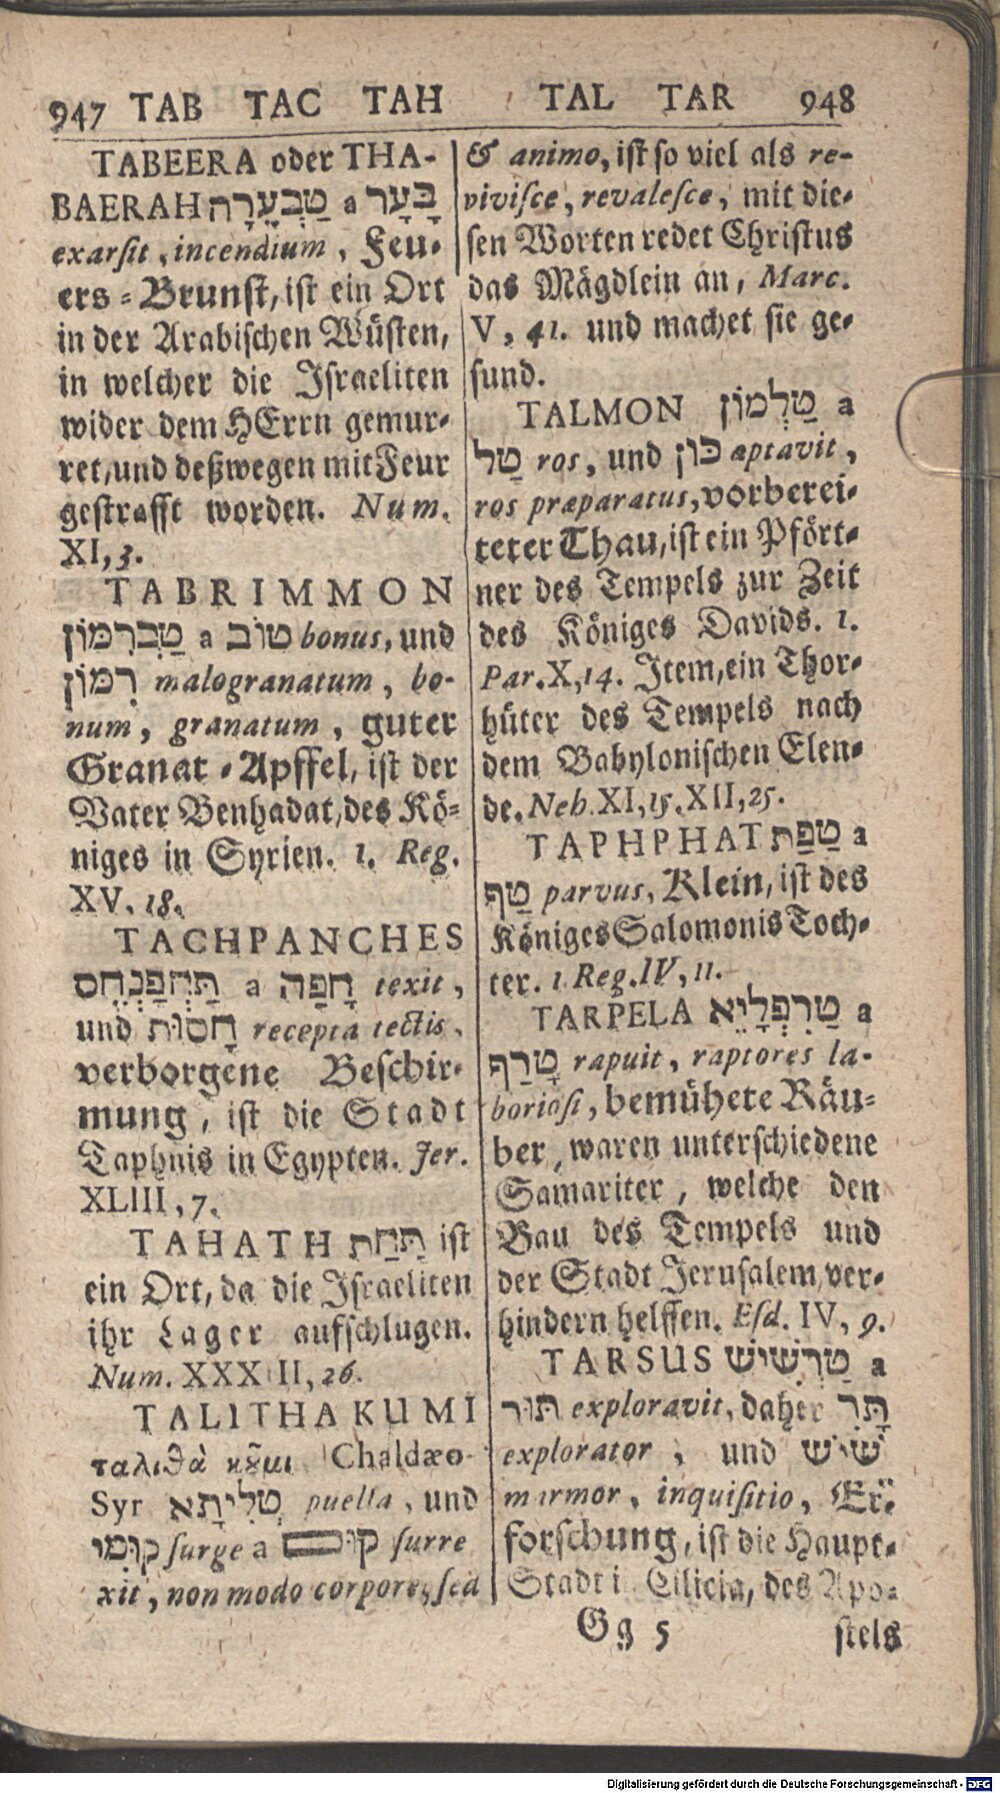 947 TAB TAC TAH
TABEERA oder THA-
BAERAH טַבְעֵרָה a בָּעַר
exarſit, incendium, Feu-
ers-Brunſt, iſt ein Ort
in der Arabiſchen Wüſten,
in welcher die Iſraeliten
wider dem HErrn gemur-
ret, und deßwegen mit Feur
geſtrafft worden. Num.
XI, 3.
TABRIMMON
טַבְרִמּוֹן a טוֹב bonus, und
רִמּוֹן malogranatum, bo-
num, granatum, guter
Granat-Apffel, iſt der
Vater Benhadat, des Kö-
niges in Syrien. 1. Reg.
XV. 18.
TACHPANCHES
תַּחְפַּנְחֵס a חָפָה texit,
und חָסוּת recepta tectis,
verborgene Beſchir-
mung, iſt die Stadt
Taphnis in Egypten. Jer.
XLIII, 7.
TAHATH תַּחַת iſt
ein Ort, da die Iſraeliten
ihr Lager aufſchlugen.
Num. XXXIII, 26.
TALITHA KUMI
ταλιθὰ κῦμι Chaldæo-
Syr טְלִיתָא puella, und
קוּמִי ſurge a קוּם ſurre
xit, non modo corpore, ſed
TAL TAR 948
& animo, iſt ſo viel als re-
viviſce, revaleſce, mit die-
ſen Worten redet Chriſtus
das Mägdlein an, Marc.
V, 41. und machet ſie ge-
ſund.
TALMON טַלְמוֹן a
טַל ros, und כּוּן aptavit,
ros præparatus, vorberei-
teter Thau, iſt ein Pfört-
ner des Tempels zur Zeit
des Königes Davids. 1.
Par. X, 14. Item, ein Thor-
hüter des Tempels nach
dem Babyloniſchen Elen-
de. Neh. XI, 15. XII, 25.
TAPHPHAT טַפַּת a
טַף parvus, Klein, iſt des
Königes Salomonis Toch-
ter. 1 Reg. IV, 11.
TARPELA טַרְפְּלָיֵא a
טָרַף rapuit, raptores la-
borioſi, bemühete Räu-
ber, waren unterſchiedene
Samariter, welche den
Bau des Tempels und
der Stadt Jeruſalem ver-
hindern helffen. Eſd. IV, 9.
TARSUS טַרְשִׁישׁ a
תּוּר exploravit, daher תָּר
explorator, und שַׁיִשׁ
marmor, inquiſitio, Er-
forſchung, iſt die Haupt-
Stadt i Cilicia, des Apo-
Gg 5 ſtels
Digitalisierung gefördert durch die Deutsche Forschungsgemeinschaft - DFG